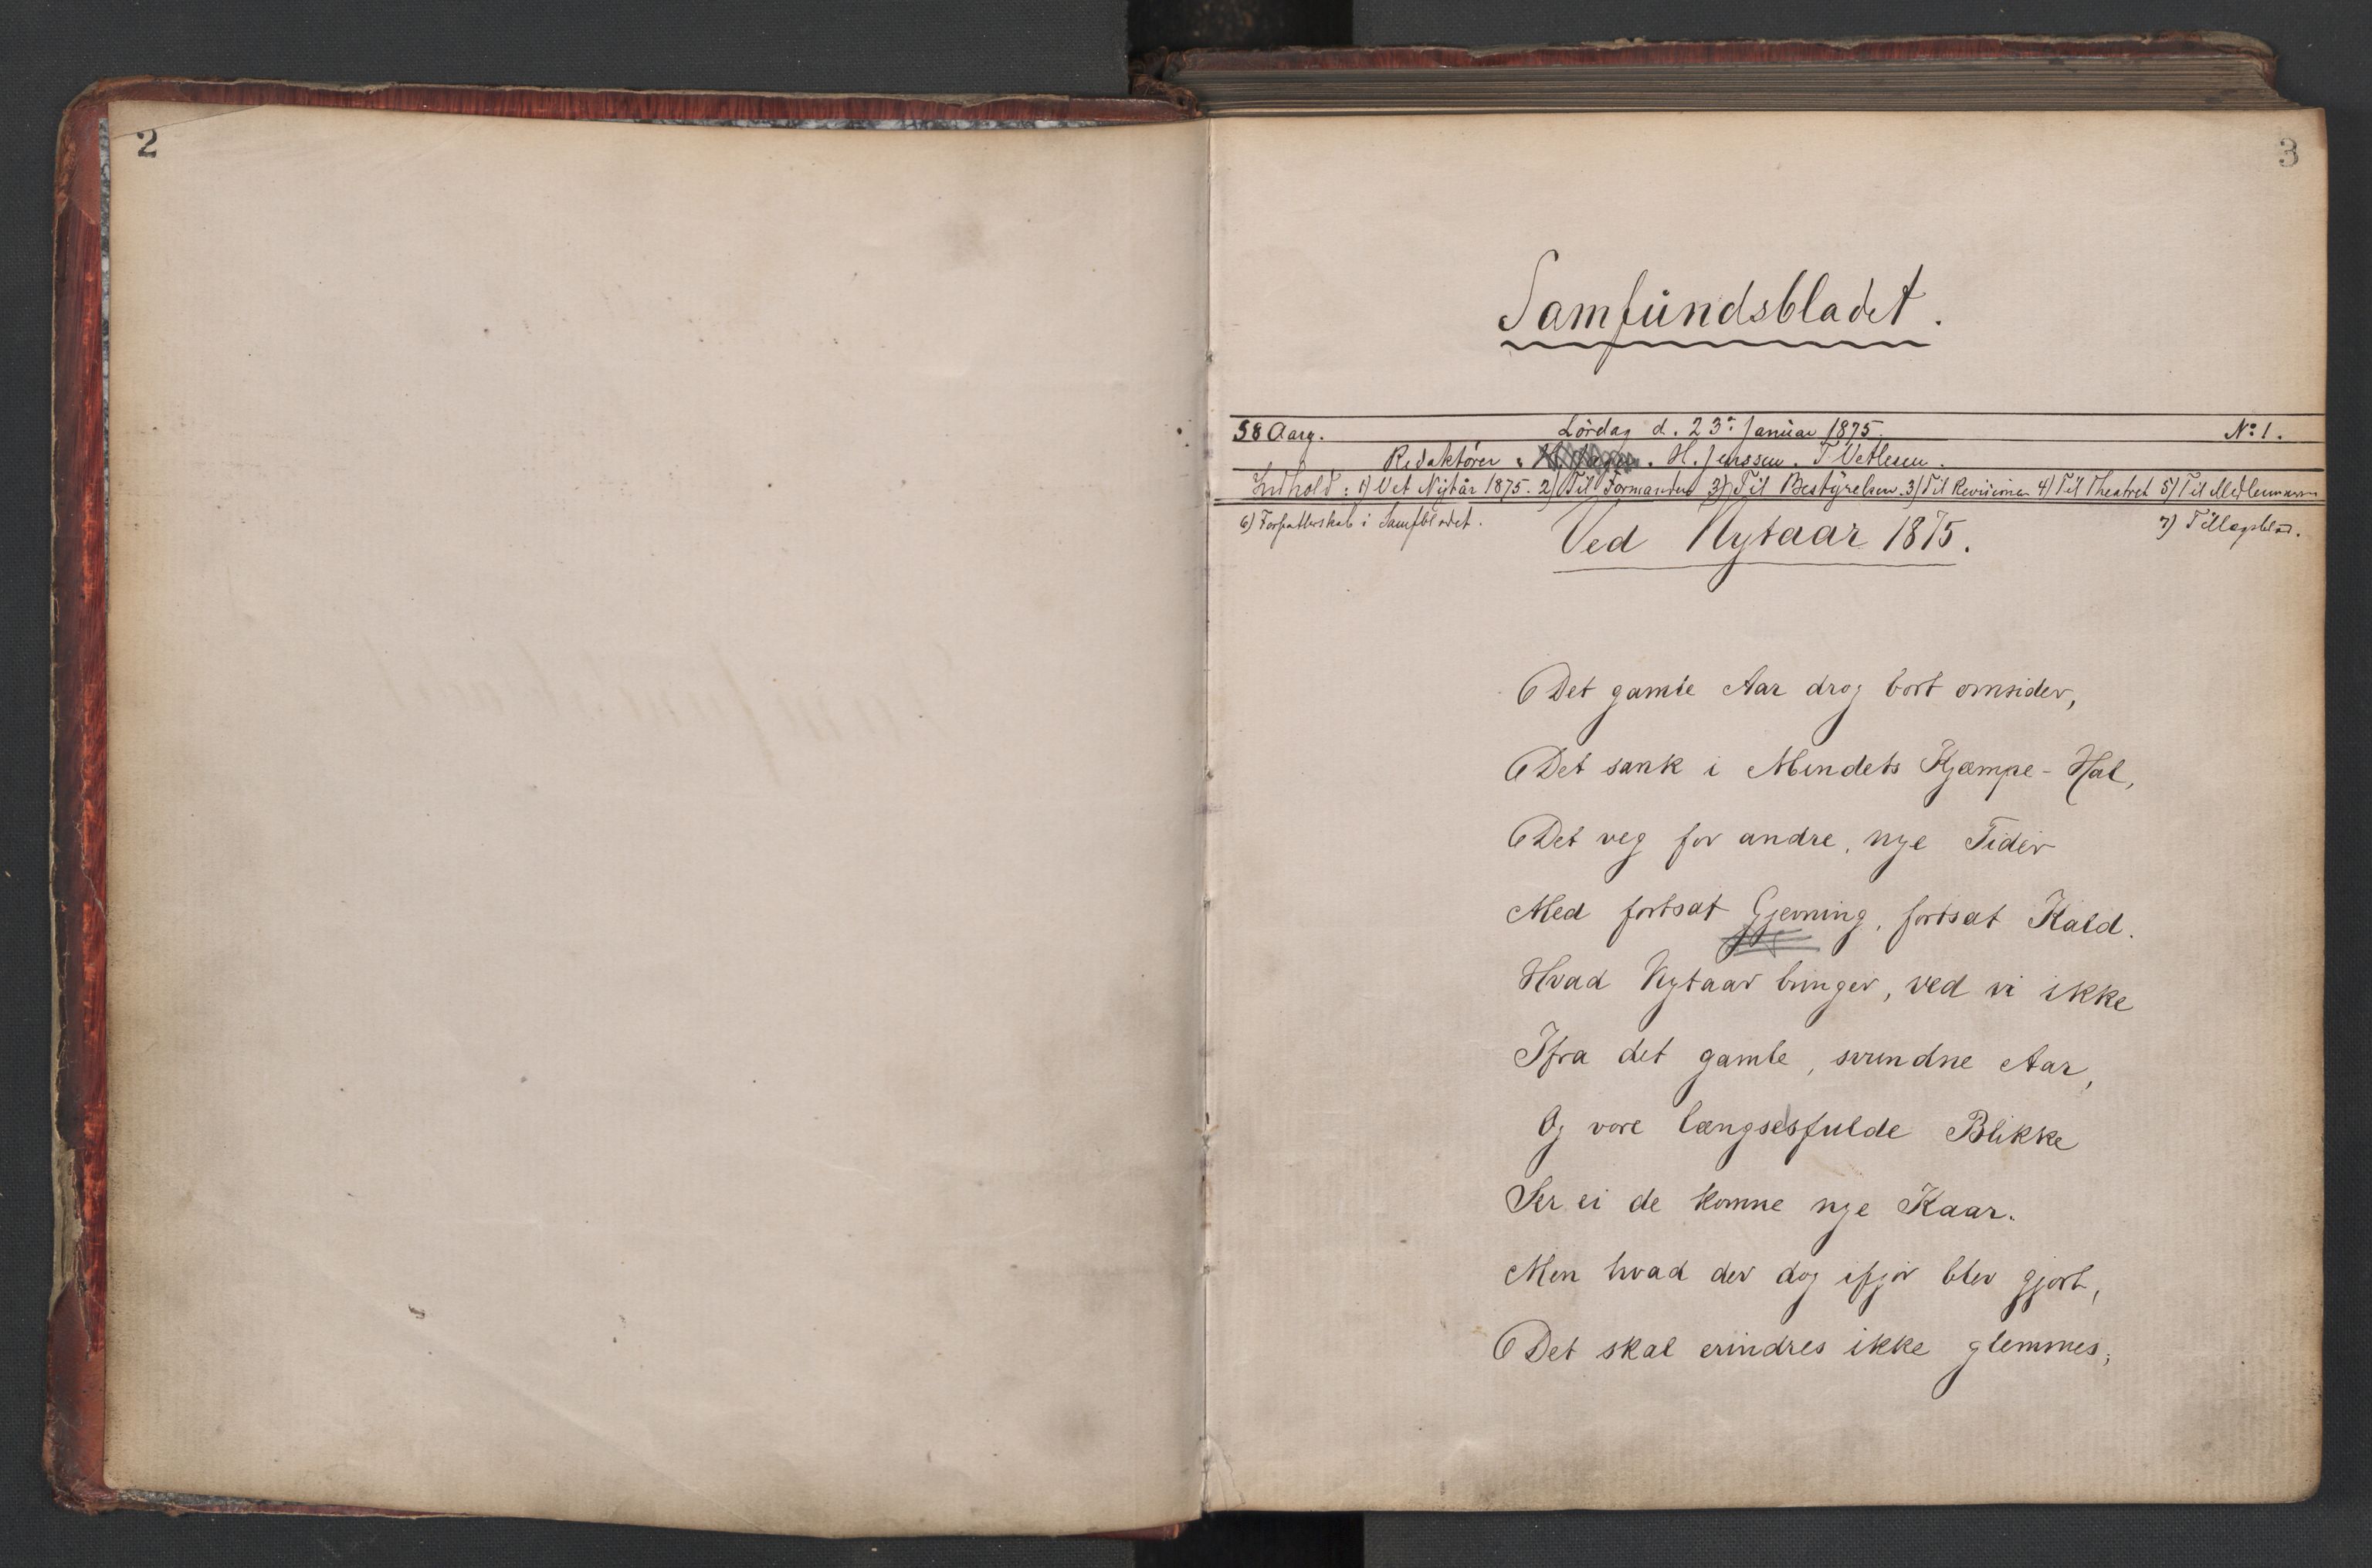 2
3
Samfundsbladet.
58 Aarg. Lördag d. 23: Januar 1875. No 1.
Redaktörer: H. Jenssen. T Vetlesen.
Indhold: 1) Vet Nytår 1875. 2) Til Formanden 3) Til Bestyrelsen. 3) Til Revüerne 4) Til Theatret 5) Til Medlemmerne
6) Forfatterskab i Samfbladet. 7) Tillægsblad.
Ved Nytaar 1875.
Det gamle Aar drog bort omsider,
Det sank i Mindets Kjæmpe-Hal,
Det veg for andre, nye Tider
Med fortsat Gjerning, fortsat Kald.
Hvad Nytaar bringer, ved vi ikke
Ifra det gamle, svundne Aar,
Og vore længselsfulde Blikke
Ser ei de komne nye Kaar.
Men hvad der dog ifjor blev gjort,
Det skal erindres ikke glemmes;